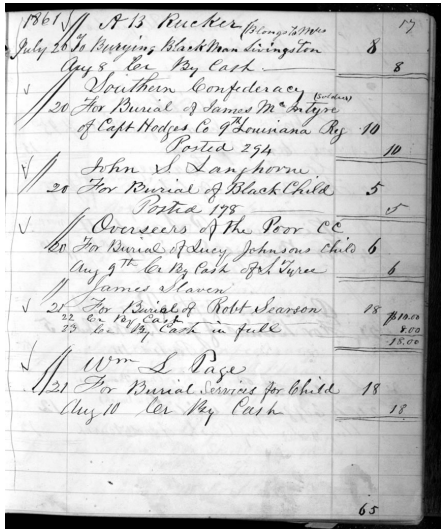 1861 // A B Rucker (Belongs to Mrs 17
July 20 To Burying Black Man Livingston 8
Aug 8 Cr By Cash 8
√ // Southern Confederacy (Soldier)
20 For Burial of James McIntyre
of Capt Hodges Co 9th Louisiana Reg 10
Posted 294 10
√ // John S Langhorne
20 For Burial of Black Child 5
Posted 178 5
√ // Overseers of the Poor CC
20 For Burial of Lucy Johnsons Child 6
Aug 9th Cr By Cash of Tyree 6
// James Slaven
√ 21 For Burial of Robt Searson 18
22 Cr By Cash $10.00
23 Cr By Cash in full 8.00
18.00
√ // Wm L Page
21 For Burial Services for Child 18
Aug 10 Cr By Cash 18
65